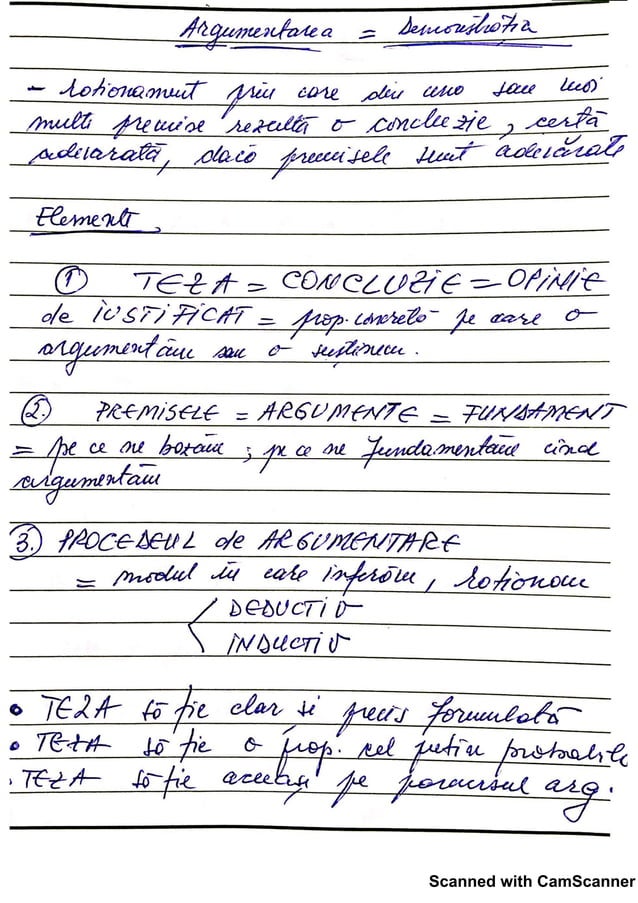 Argumentarea = Demonstrația
- Rationament prin care din una sau mai
multe premise rezultă o concluzie, certă
adevarată, dacă premisele sunt adevărate
Elemente
① TEZA = CONCLUZIE = OPINIE
de IUSTIFICAT = prop. concretă pe care o
argumentăm sau o susținem.
②. PREMISELE = ARGUMENTE = FUNDAMENT
= pe ce ne bazăm ; pe ce ne fundamentăm cînd
argumentăm
③. PROCEDEUL de ARGUMENTARE
= modul în care inferăm, rationam
DEDUCTIV
INDUCTIV
• TEZA să fie clar si precis formulată
• TEZA să fie o prop. cel puțin probabilă
• TEZA să fie aceeași pe parcursul arg.
Scanned with CamScanner